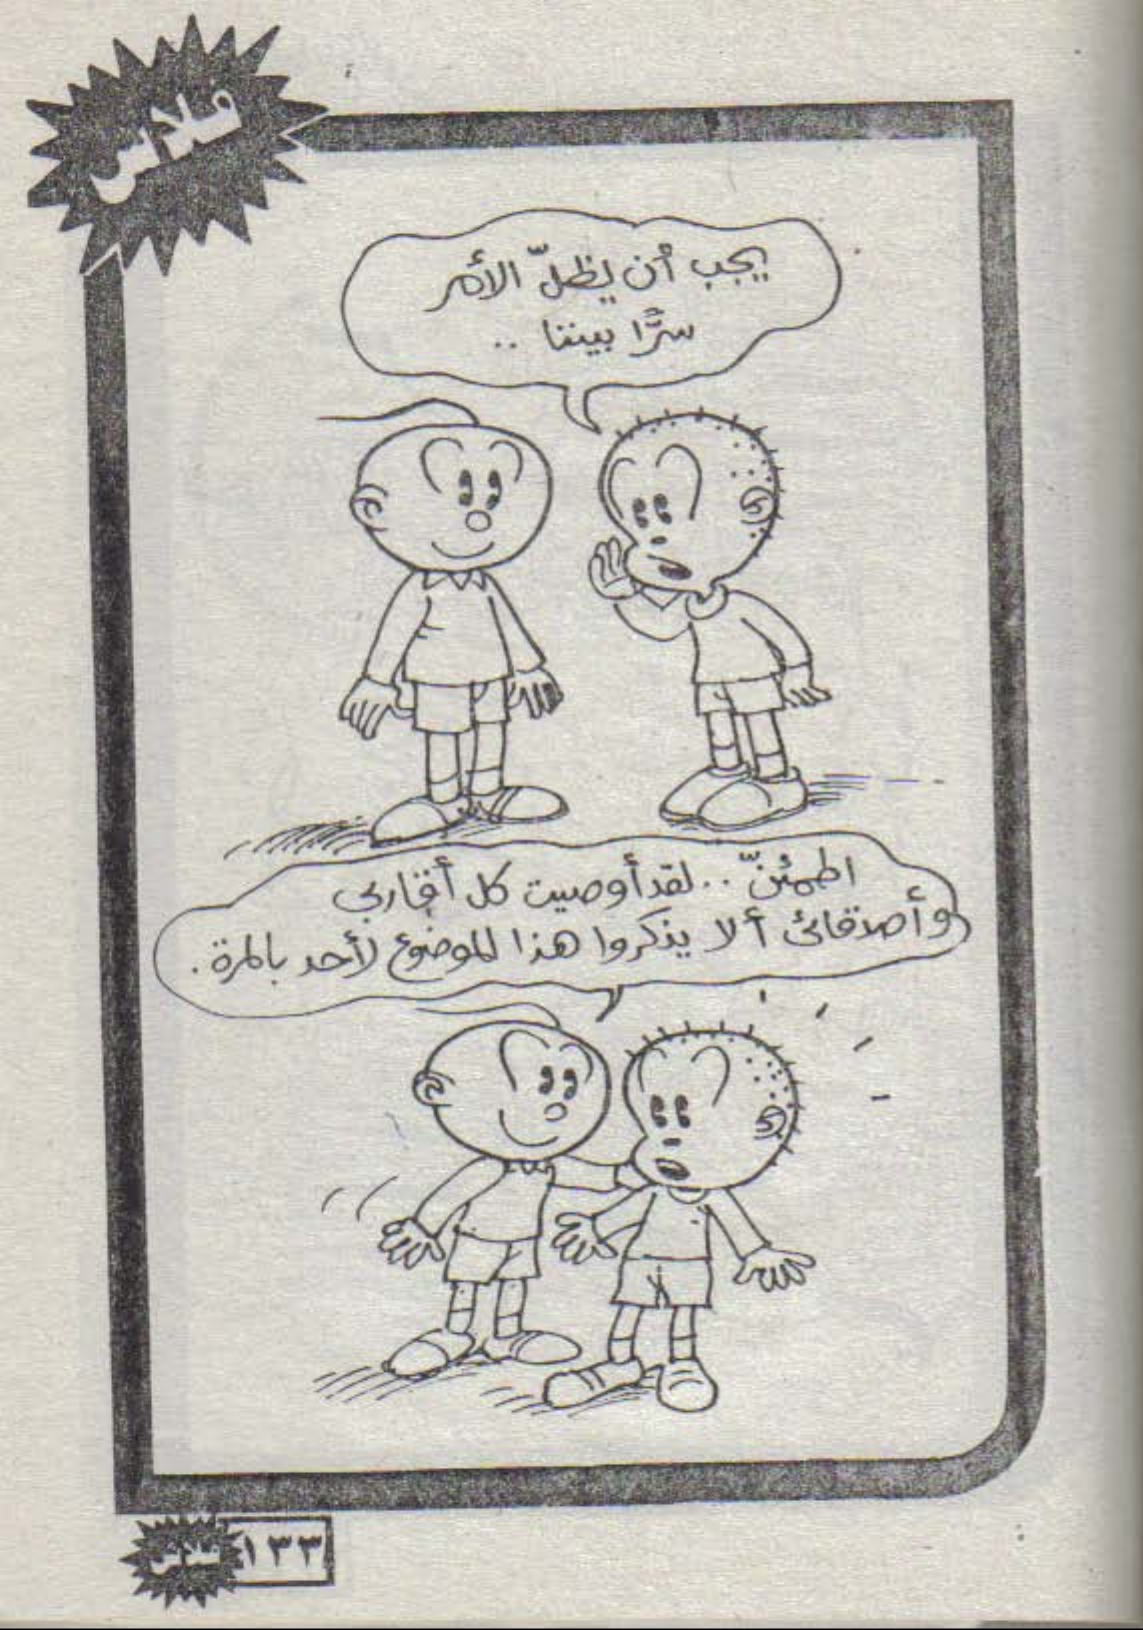 فلاش
يجب أن يظلّ الأمر
سرًّا بيننا ..
اطمئنّ .. لقد أوصيت كل أقاربى
وأصدقائى ألا يذكروا هذا الموضوع لأحد بالمرة .
فلاش ١٣٣